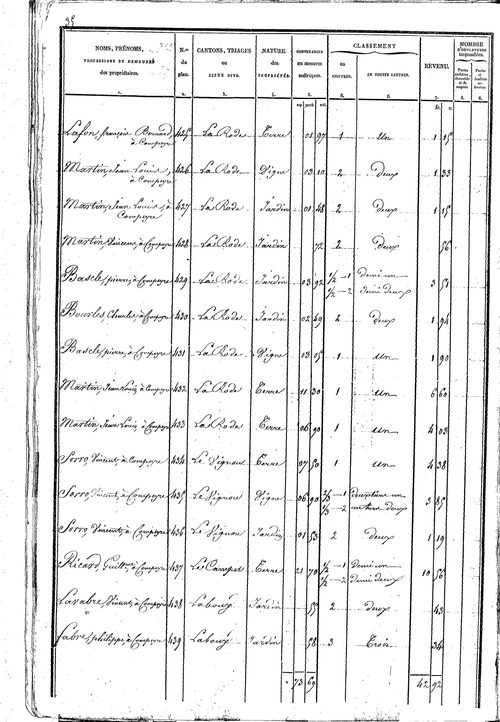 35
NOMS, PRÉNOMS, PROFESSIONS ET DEMEURES des propriétaires. N.os du plan. CANTONS, TRIAGES ou LIEUX DITS. NATURE des PROPRIÉTÉS. CONTENANCES en mesures métriques. CLASSEMENT ou CHIFFRES. EN TOUTES LETTRES. REVENU. NOMBRE D'OUVERTURES imposables.
1. 2. 3. 4. 5. 6. 7.
Lafon, françois Bernard, à Compeyre 425 La Rode Terre 01 97 1 un 1 15
Martin, Jean Louis, à Compeyre 426 La Rode Vigne 03 10 2 deux 1 33
Martin, Jean Louis, à Compeyre 427 La Rode Jardin 01 48 2 deux 1 15
Martin, Vincent, à Compeyre 428 La Rode Jardin 72 2 deux 56
Bascle, pierre, à Compeyre 429 La Rode Jardin 03 92 1/2 — 1 demi un 1/2 — 2 demi deux 3 53
Bourles Charles, à Compeyre 430 La Rode Jardin 02 49 2 deux 1 94
Bascle, pierre, à Compeyre 431 La Rode Vigne 03 05 1 un 1 90
Martin, Jean Louis, à Compeyre 432 La Rode Terre 11 30 1 un 6 60
Martin, Jean Louis, à Compeyre 433 La Rode Terre 06 90 1 un 4 03
Sorro, Vincent, à Compeyre 434 Le Vignou Terre 07 50 1 un 4 38
Sorro, Vincent, à Compeyre 435 Le Vignou Vigne 06 90 2/3 — 1 deux tiers un 1/3 — 2 un tiers deux 3 85
Sorro, Vincent, à Compeyre 436 Le Vignou Jardin 01 53 2 deux 1 19
Ricard, à Compeyre 437 Le Campet Terre 21 70 1/2 — 1 demi un 1/2 — 2 demi deux 10 56
Lavabre, Vincent, à Compeyre 438 Labouÿ Jardin 55 2 deux 43
fabre, philippe, à Compeyre 439 Labouÿ Jardin 58 3 Trois 34
73 69 42 92